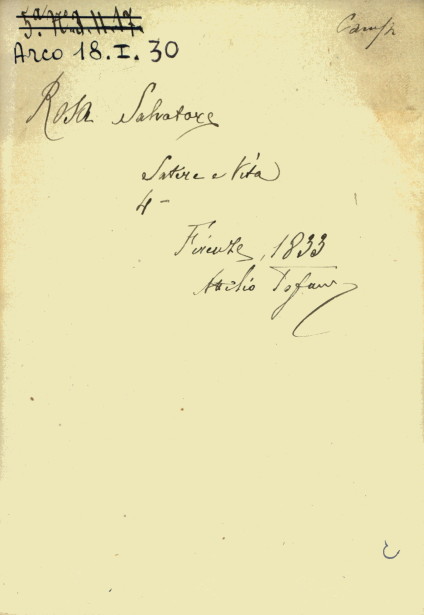 Arco 18.I.30
Rosa Salvatore
Satire e Vita
4-
Firenze, 1833
Attilio Tofani